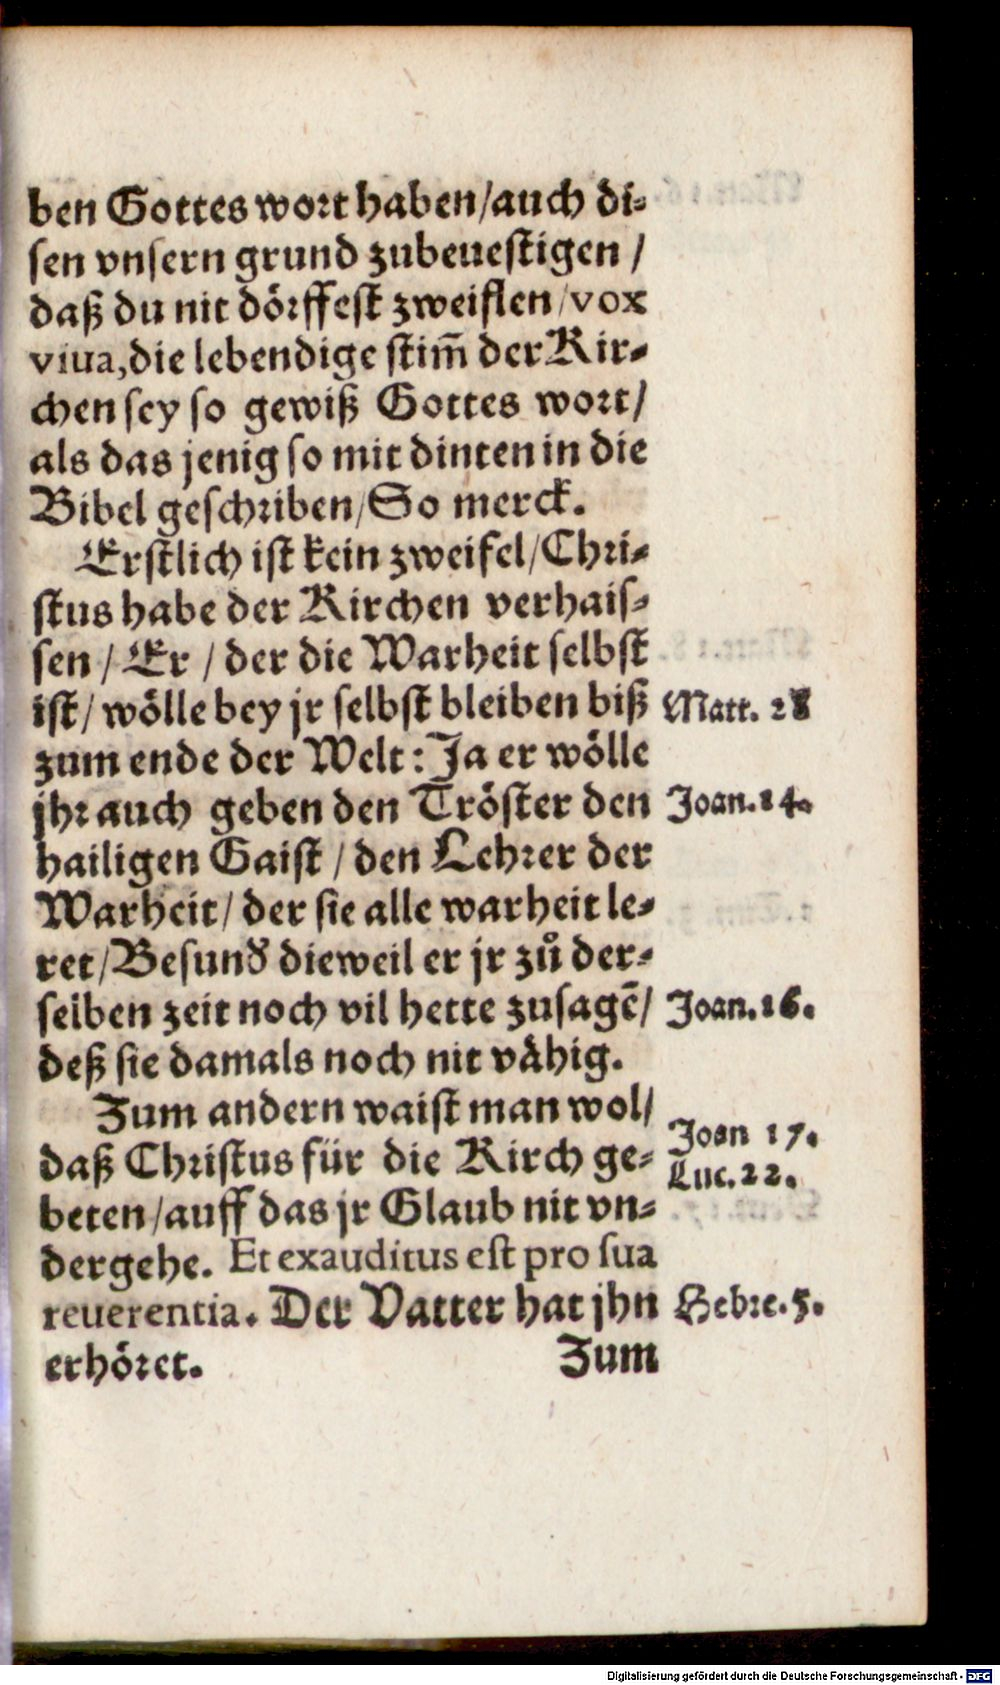 ben Gottes wort haben/auch di⸗
sen vnsern grund zubeuestigen /
daß du nit dörffest zweiflen/vox
viua,die lebendige stim̃ der Kir⸗
chen sey so gewiß Gottes wort/
als das jenig so mit dinten in die
Bibel geschriben/So merck.
Erstlich ist kein zweifel/Chri⸗
stus habe der Kirchen verhais⸗
sen / Er / der die Warheit selbst
ist/ wölle bey jr selbst bleiben biß Matt. 28
zum ende der Welt: Ja er wölle
jhr auch geben den Tröster den Joan.14.
hailigen Gaist / den Lehrer der
Warheit/ der sie alle warheit le⸗
ret/Besund̕ dieweil er jr zů der⸗
selben zeit noch vil hette zusagẽ/ Joan.16.
deß sie damals noch nit vähig.
Zum andern waist man wol/
Joan 17.
daß Christus für die Kirch ge⸗
Luc.22.
beten/auff das jr Glaub nit vn⸗
dergehe. Et exauditus est pro sua
reuerentia. Der Vatter hat jhn Hebre.5.
erhöret. Zum
Digitalisierung gefördert durch die Deutsche Forschungsgemeinschaft - DFG